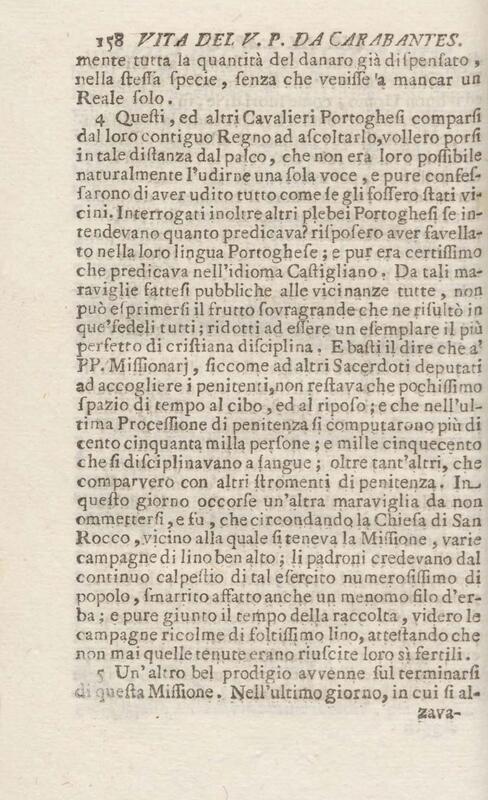 158 VITA DEL V. P. DA CARABANTES.
mente tutta la quantità del danaro già diſpenſato,
nella ſteſſa ſpecie, ſenza che veniſſe a mancar un
Reale ſolo.
4 Queſti, ed altri Cavalieri Portogheſi comparſi
dal loro contiguo Regno ad aſcoltarlo, vollero porſi
in tale diſtanza dal palco, che non era loro poſſibile
naturalmente l'udirne una ſola voce, e pure confeſ-
ſarono di aver udito tutto come ſe gli foſſero ſtati vi-
cini. Interrogati inoltre altri plebei Portogheſi ſe in-
tendevano quanto predicava? riſpoſero aver favella-
to nella loro lingua Portogheſe; e pur era certiſſimo
che predicava nell'idioma Caſtigliano. Da tali ma-
raviglie fatteſi pubbliche alle vicinanze tutte, non
può eſprimerſi il frutto ſovragrande che ne riſultò in
que' fedeli tutti; ridotti ad eſſere un eſemplare il più
perfetto di criſtiana diſciplina. E baſti il dire che a'
PP. Miſſionarj, ſiccome ad altri Sacerdoti deputati
ad accogliere i penitenti, non reſtava che pochiſſimo
ſpazio di tempo al cibo, ed al ripoſo; e che nell'ul-
tima Proceſſione di penitenza ſi computarono più di
cento cinquanta milla perſone; e mille cinquecento
che ſi diſciplinavano a ſangue; oltre tant'altri, che
comparvero con altri ſtromenti di penitenza. In
queſto giorno occorſe un'altra maraviglia da non
ommetterſi, e fu, che circondando la Chieſa di San
Rocco, vicino alla quale ſi teneva la Miſſione, varie
campagne di lino ben alto; li padroni credevano dal
continuo calpeſtio di tal eſercito numeroſiſſimo di
popolo, ſmarrito affatto anche un menomo filo d'er-
ba; e pure giunto il tempo della raccolta, videro le
campagne ricolme di foltiſſimo lino, atteſtando che
non mai quelle tenute erano riuſcite loro sì fertili.
5 Un'altro bel prodigio avvenne ſul terminarſi
di queſta Miſſione. Nell'ultimo giorno, in cui ſi al-
zava-